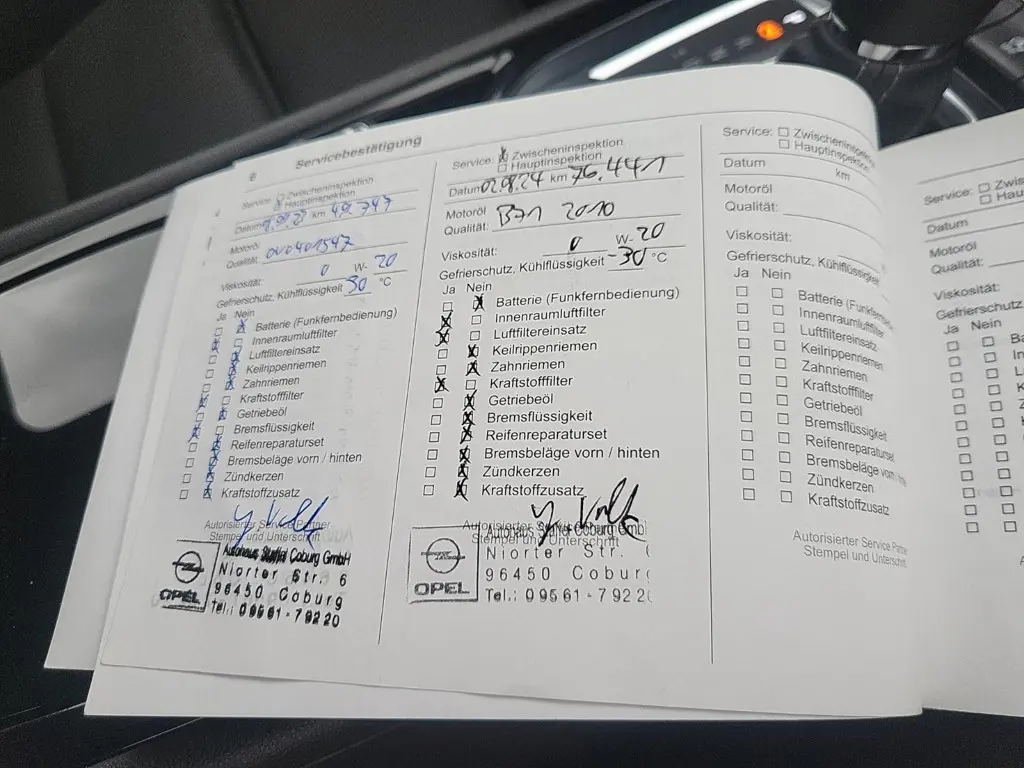 6 Servicebestätigung
Service: Zwischeninspektion
Hauptinspektion
Datum km 49.747
Motoröl
Qualität: OV0401547
Viskosität: 0 W- 20
Gefrierschutz, Kühlflüssigkeit 30 °C
Ja Nein
Batterie (Funkfernbedienung)
Innenraumluftfilter
Luftfiltereinsatz
Keilrippenriemen
Zahnriemen
Kraftstofffilter
Getriebeöl
Bremsflüssigkeit
Reifenreparaturset
Bremsbeläge vorn / hinten
Zündkerzen
Kraftstoffzusatz
Autorisierter Service Partner
Stempel und Unterschrift
Autohaus Coburg GmbH
Niorter Str. 6
96450 Coburg
OPEL
Tel.: 09561-79220
Service: Zwischeninspektion
Hauptinspektion
Datum 02.08.24 km 76.441
Motoröl
Qualität: B71 2010
Viskosität: 0 W- 20
Gefrierschutz, Kühlflüssigkeit -30 °C
Ja Nein
Batterie (Funkfernbedienung)
Innenraumluftfilter
Luftfiltereinsatz
Keilrippenriemen
Zahnriemen
Kraftstofffilter
Getriebeöl
Bremsflüssigkeit
Reifenreparaturset
Bremsbeläge vorn / hinten
Zündkerzen
Kraftstoffzusatz
Autorisierter Service Partner
Stempel und Unterschrift
Autohaus Coburg GmbH
Niorter Str. 6
96450 Coburg
OPEL
Tel.: 09561-7922
Service: Zwischeninspektion
Hauptinspektion
Datum km
Motoröl
Qualität:
Viskosität:
Gefrierschutz, Kühlflüssigkeit
Ja Nein
Batterie (Funkfe
Innenraumluftfilter
Luftfiltereinsatz
Keilrippenriemen
Zahnriemen
Kraftstofffilter
Getriebeöl
Bremsflüssigkeit
Reifenreparaturset
Bremsbeläge vorn
Zündkerzen
Kraftstoffzusatz
Autorisierter Service Partner
Stempel und Unterschrift
Service: Zwis
Hau
Datum
Motoröl
Qualität:
Viskosität:
Gefrierschutz
Ja Nein